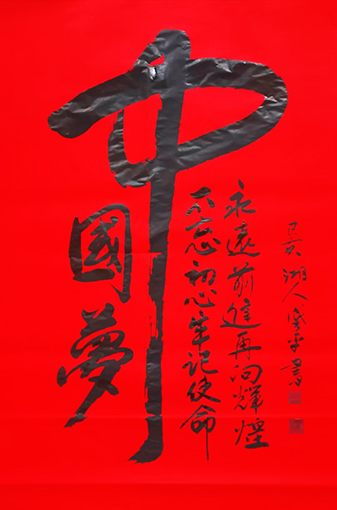 中國夢
永遠前進再向輝煌
不忘初心牢记使命
己亥湖人
書